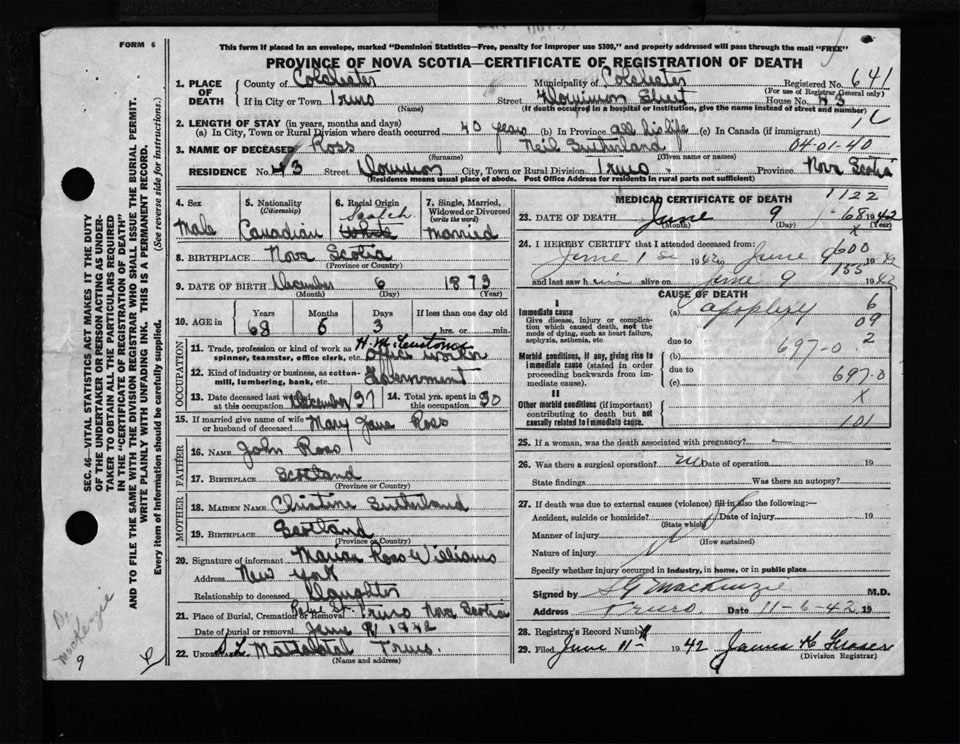 FORM 6
This form if placed in an envelope, marked "Dominion Statistics—Free, penalty for improper use $300," and properly addressed will pass through the mail "FREE"
PROVINCE OF NOVA SCOTIA—CERTIFICATE OF REGISTRATION OF DEATH
1. PLACE OF DEATH County of Colchester Municipality of Colchester Registered No. 641
(For use of Registrar General only)
If in City or Town Truro Street Dominion Street House No. 43
(Name) (If death occurred in a hospital or institution, give the name instead of street and number)
2. LENGTH OF STAY (in years, months and days)
(a) In City, Town or Rural Division where death occurred 40 years (b) In Province all his life (c) In Canada (if immigrant)
3. NAME OF DECEASED Ross Neil Sutherland 04-01-40
(Surname) (Given name or names)
RESIDENCE No. 43 Street Dominion City, Town or Rural Division Truro Province Nova Scotia
(Residence means usual place of abode. Post Office Address for residents in rural parts not sufficient)
4. Sex Male
5. Nationality (Citizenship) Canadian
6. Racial Origin Scotch White
7. Single, Married, Widowed or Divorced (write the word) Married
8. BIRTHPLACE Nova Scotia
(Province or Country)
9. DATE OF BIRTH December 6 1873
(Month) (Day) (Year)
10. AGE in Years Months Days If less than one day old
68 6 3 hrs. or min.
OCCUPATION
11. Trade, profession or kind of work as spinner, teamster, office clerk, etc. office worker
12. Kind of industry or business, as cotton-mill, lumbering, bank, etc. Government
13. Date deceased last worked at this occupation December 37 14. Total yrs. spent in this occupation 30
15. If married give name of wife or husband of deceased Mary Jane Ross
FATHER
16. NAME John Ross
17. BIRTHPLACE Scotland
(Province or Country)
MOTHER
18. MAIDEN NAME Christine Sutherland
19. BIRTHPLACE Scotland
(Province or Country)
20. Signature of informant Marian Ross Williams
Address New York
Relationship to deceased Daughter
21. Place of Burial, Cremation or Removal Truro Nova Scotia
Date of burial or removal June
22. UNDERTAKER Mattatall Truro.
(Name and address)
MEDICAL CERTIFICATE OF DEATH 1122
23. DATE OF DEATH June 9 68 1942
(Month) (Day) (Year)
24. I HEREBY CERTIFY that I attended deceased from:
June 1 1942 to June 9 600 42
and last saw h alive on June 9 155 1942
CAUSE OF DEATH
I
Immediate cause
Give disease, injury or complication which caused death, not the mode of dying, such as heart failure, asphyxia, asthenia, etc.
(a) apoplexy 6
09
due to 2
697-0
Morbid conditions, if any, giving rise to immediate cause (stated in order proceeding backwards from immediate cause).
(b)
due to
(c) 697-0
x
II
Other morbid conditions (if important) contributing to death but not causally related to immediate cause.
101
25. If a woman, was the death associated with pregnancy?
26. Was there a surgical operation? Date of operation 19
State findings Was there an autopsy?
27. If death was due to external causes (violence) fill in also the following:—
Accident, suicide or homicide? Date of injury 19
(State which)
Manner of injury
(How sustained)
Nature of injury
Specify whether injury occurred in industry, in home, or in public place
Signed by MacKenzie M.D.
Address Truro. Date 11-6-42 19
28. Registrar's Record Number
29. Filed June 11- 1942 James
(Division Registrar)
SEC. 46—VITAL STATISTICS ACT MAKES IT THE DUTY
OF THE UNDERTAKER OR PERSON ACTING AS UNDER-
TAKER TO OBTAIN ALL THE PARTICULARS REQUIRED
IN THE "CERTIFICATE OF REGISTRATION OF DEATH"
AND TO FILE THE SAME WITH THE DIVISION REGISTRAR WHO SHALL ISSUE THE BURIAL PERMIT.
WRITE PLAINLY WITH UNFADING INK. THIS IS A PERMANENT RECORD.
Every item of information should be carefully supplied. (See reverse side for instructions.)
Dr. MacKenzie
9